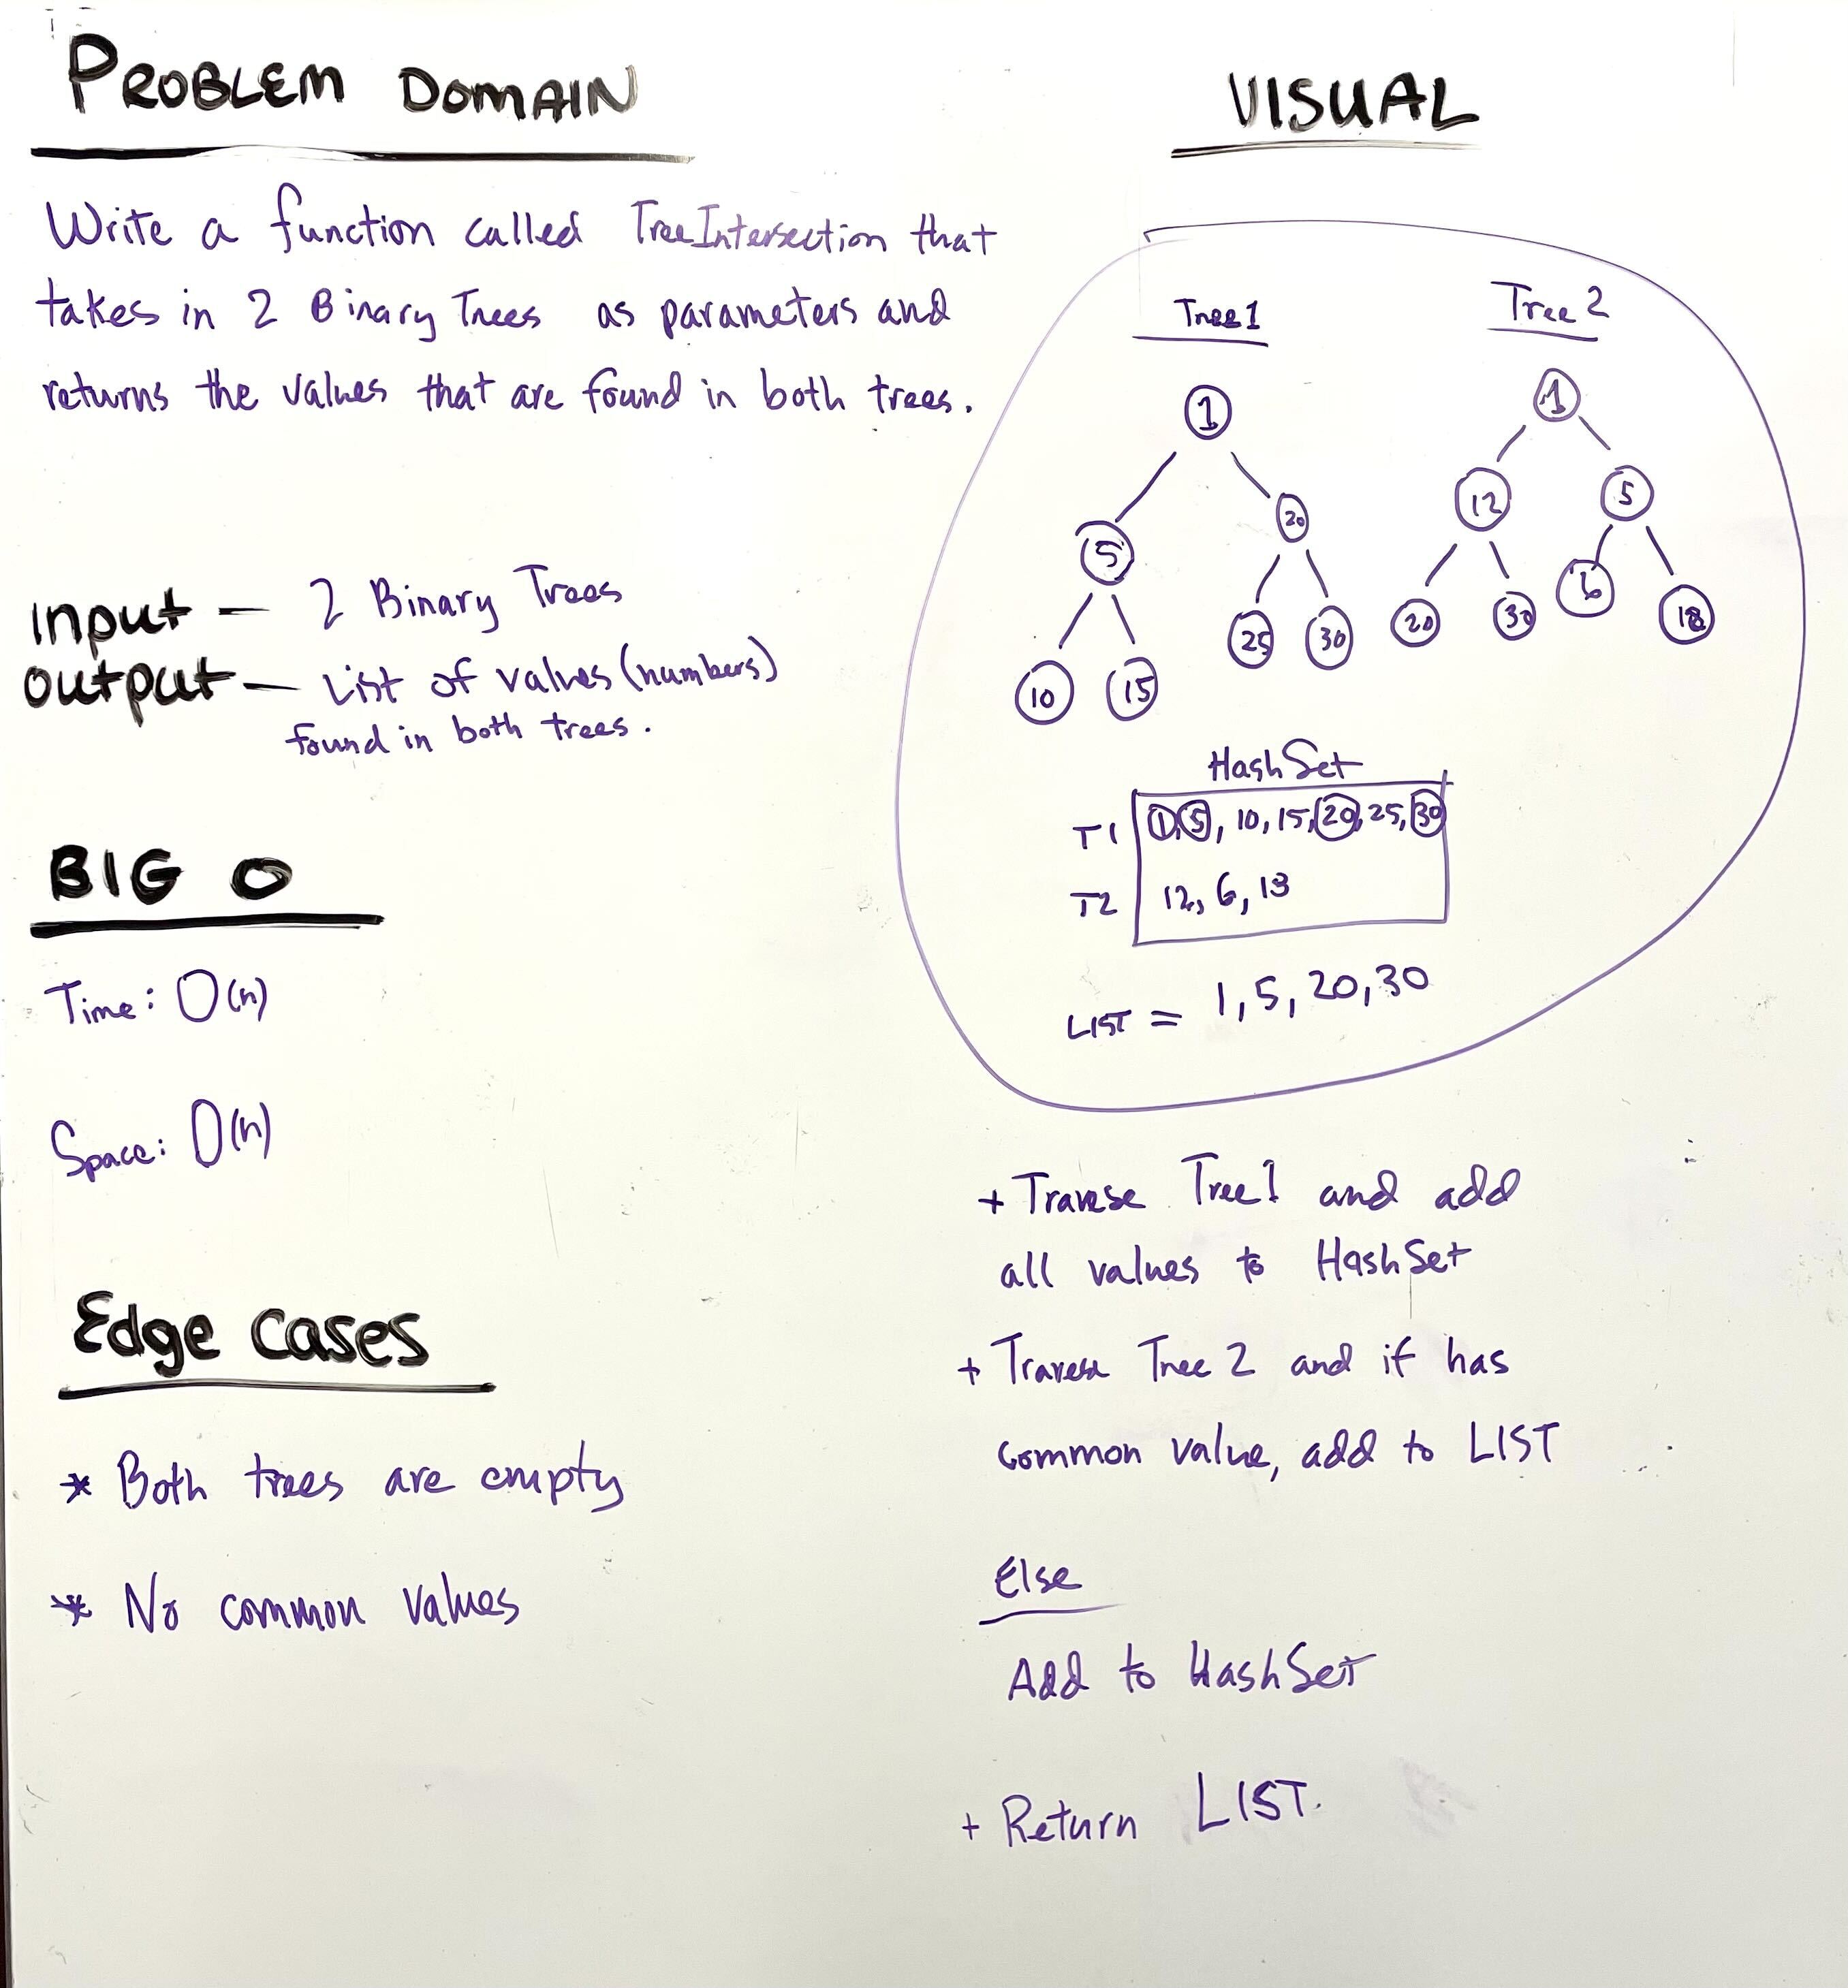 PROBLEM DOMAIN
Write a function called TreeIntersection that
takes in 2 Binary Trees as parameters and
returns the values that are found in both trees.
Input – 2 Binary Trees
Output – List of values (numbers)
found in both trees.
BIG O
Time: O(n)
Space: O(n)
Edge Cases
* Both trees are empty
* No common values
VISUAL
Tree1
1
5 20
25 30
10 15
Tree 2
1
12 5
20 30 6 18
HashSet
T1 1, 5, 10, 15, 20, 25, 30
T2 12, 6, 18
LIST = 1, 5, 20, 30
+ Traverse Tree1 and add
all values to HashSet
+ Traverse Tree 2 and if has
common value, add to LIST
Else
Add to HashSet
+ Return LIST.